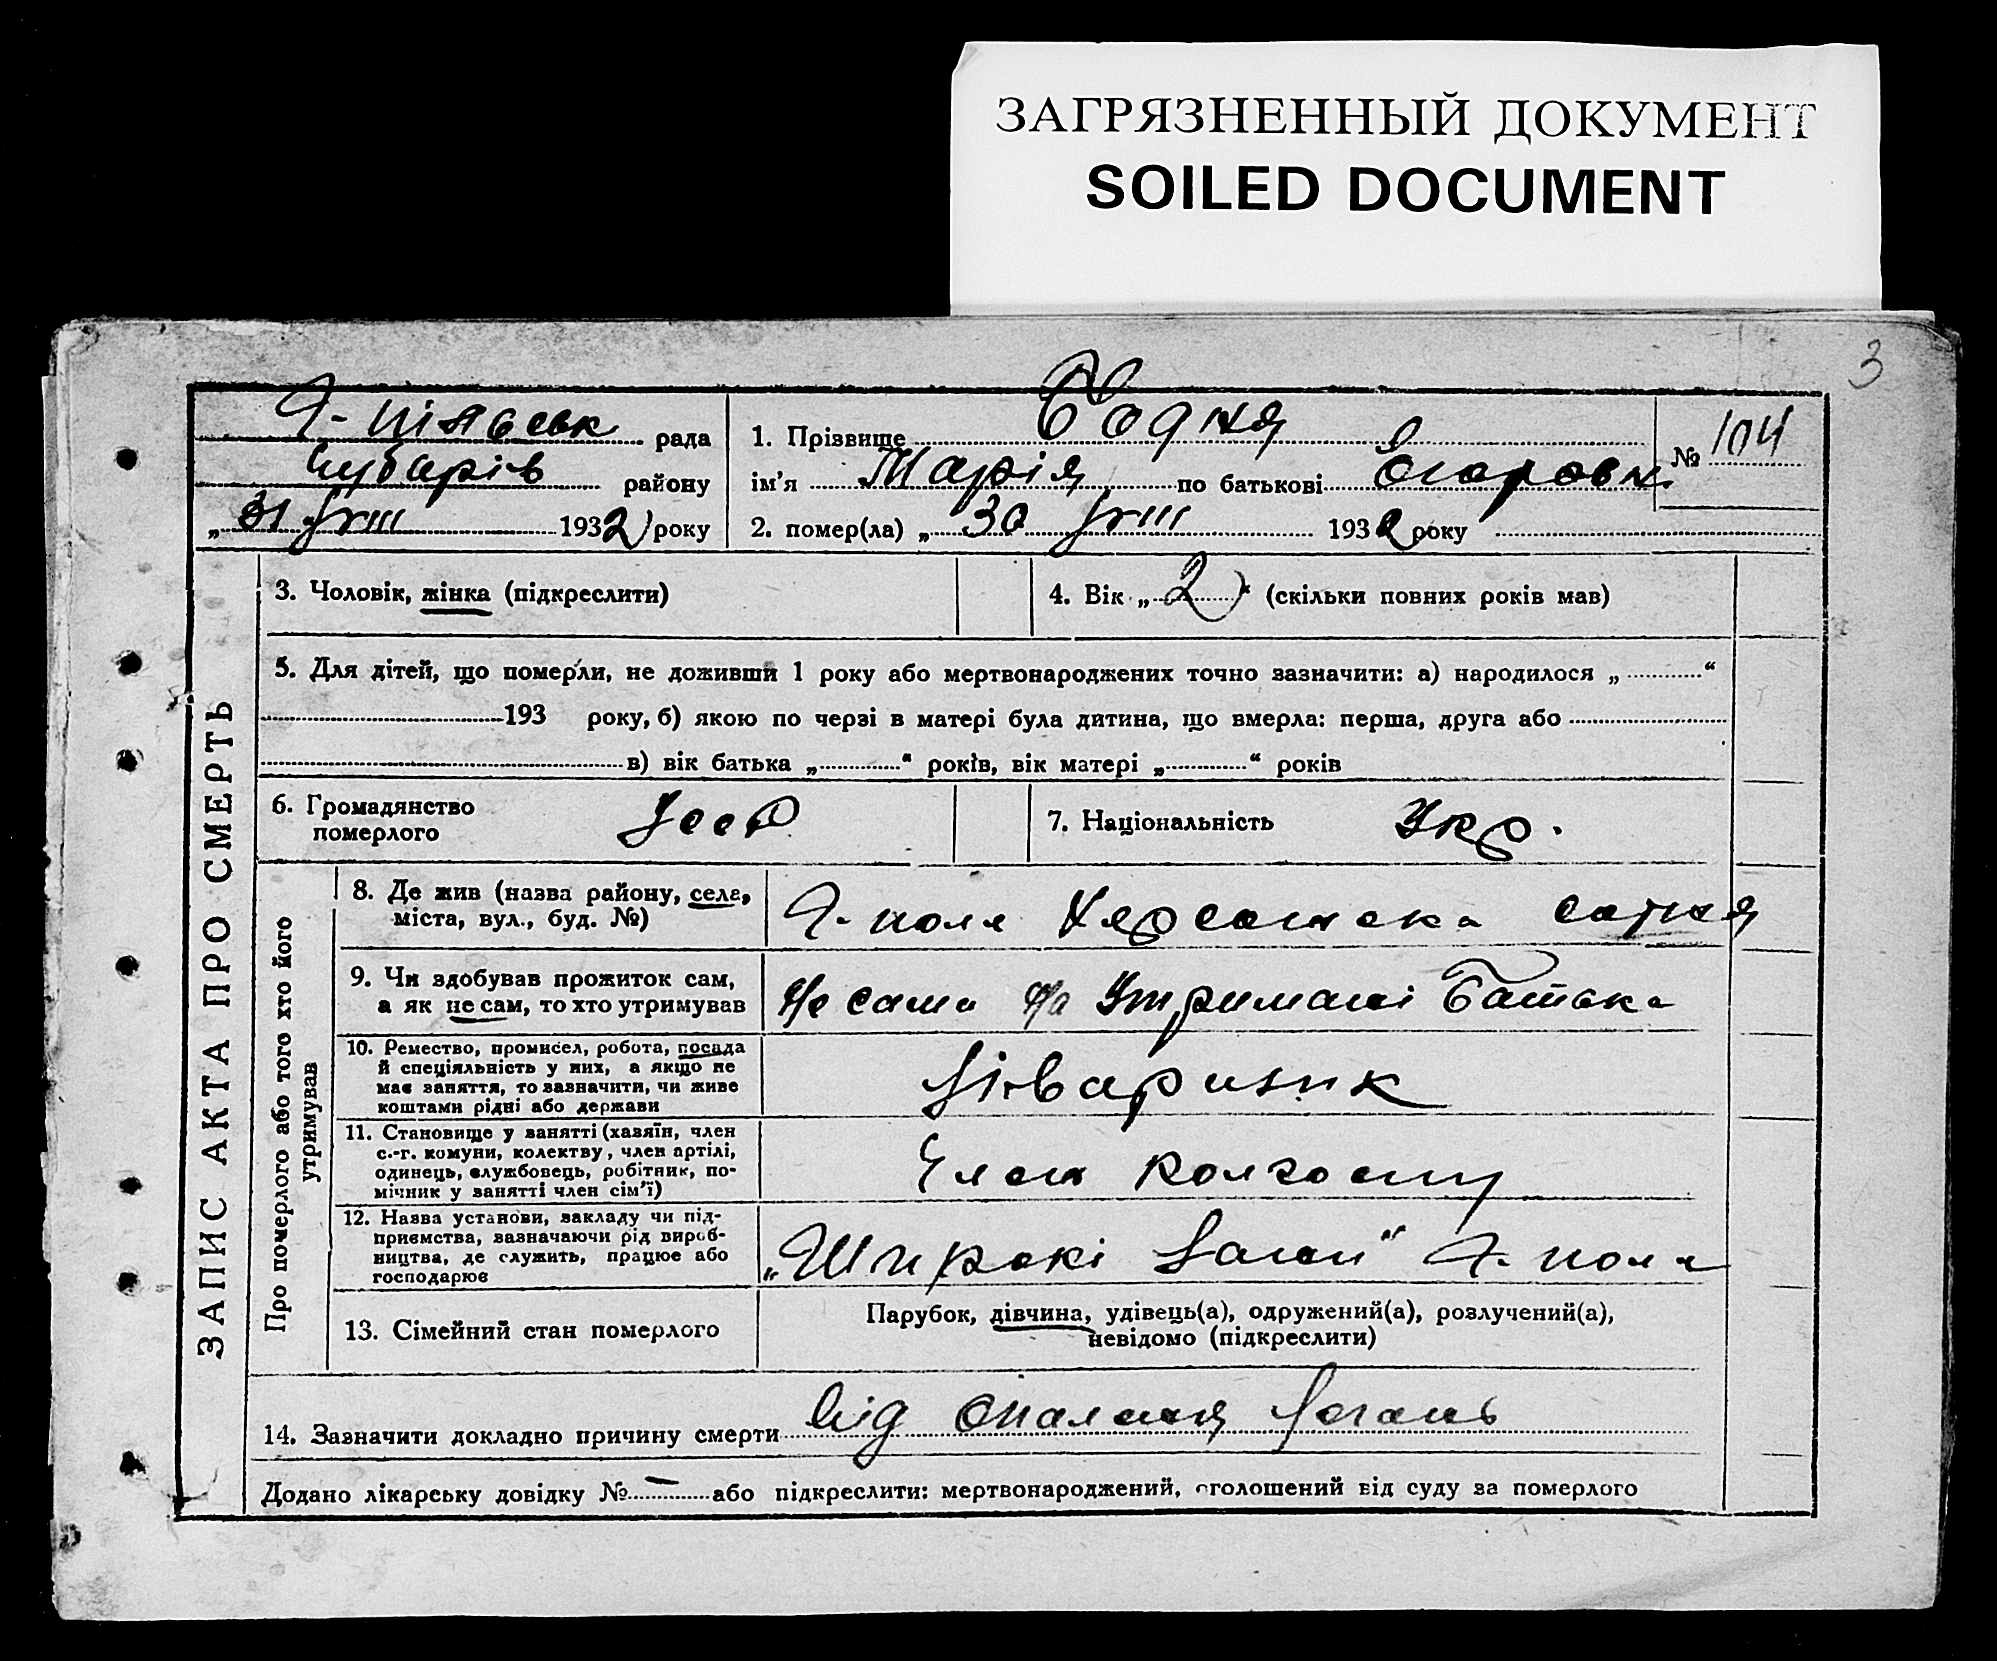 ЗАГРЯЗНЕННЫЙ ДОКУМЕНТ
SOILED DOCUMENT
3
рада
району
„ 31 " VIII 1932 року
1. Прізвище Бодня
№ 104
ім'я Марія по батькові Єгоровн.
2. помер(ла) „ 30 VIII 1932 року
3. Чоловік, жінка (підкреслити)
4. Вік „ 2 “ (скільки повних років мав)
5. Для дітей, що померли, не доживши 1 року або мертвонароджених точно зазначити: а) народилося „ “
193 року, б) якою по черзі в матері була дитина, що вмерла: перша, друга або
в) вік батька „ “ років, вік матері „ “ років
6. Громадянство
померлого
УССР
7. Національність Укр.
ЗАПИС АКТА ПРО СМЕРТЬ
Про померлого або того хто його
утримував
8. Де жив (назва району, села,
міста, вул., буд. №)
поля Херсонська сотня
9. Чи здобував прожиток сам,
а як не сам, то хто утримував
Не сама На Утримані Батька
10. Ремество, промисел, робота, посада
й спеціяльність у них, а якщо не
має заняття, то зазначити, чи живе
коштами рідні або держави
11. Становище у занятті (хазяїн, член
с.-г. комуни, колективу, член артілі,
одинець, службовець, робітник, по-
мічник у занятті член сім'ї)
Член колгоспу
12. Назва установи, закладу чи під-
приємства, зазначаючи рід вироб-
ництва, де служить, працює або
господарює
„Широкі Лани" поля
13. Сімейний стан померлого
Парубок, дівчина, удівець(а), одружений(а), розлучений(а),
невідомо (підкреслити)
14. Зазначити докладно причину смерти Від
Додано лікарську довідку № — або підкреслити: мертвонароджений, оголошений від суду за померлого